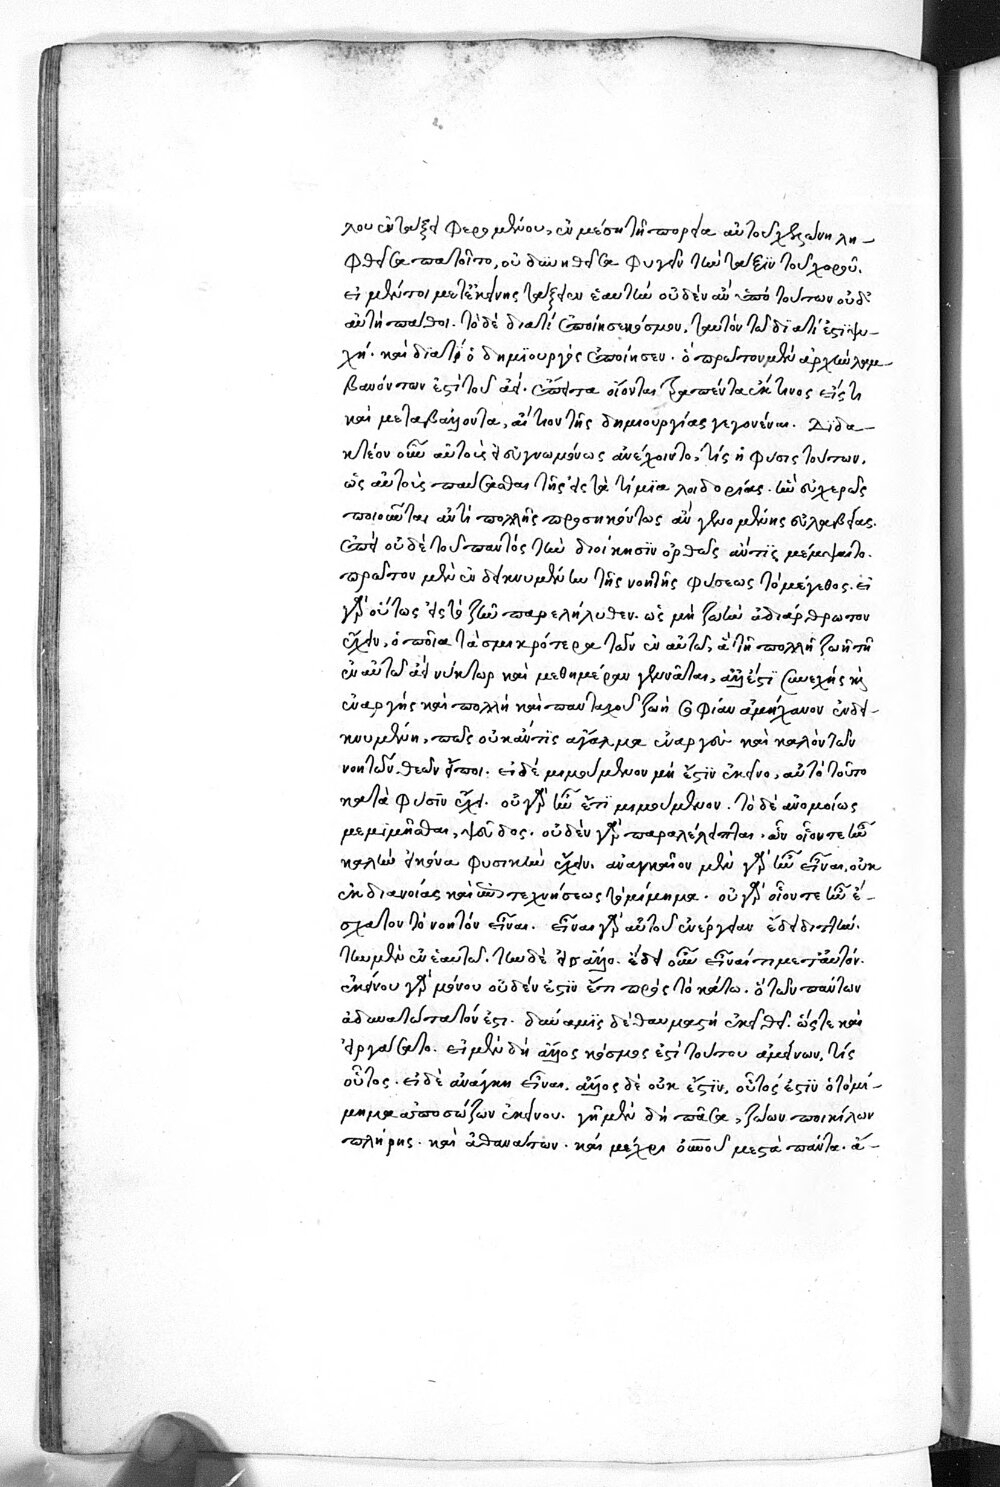 λου ἐν τάξει φερομένου, ἐν μέσῃ τῇ πορεία αὐτοῦ χελώνη λη-
φθεῖσα πατοῖτο, οὐ δυνηθεῖσα φυγεῖν τὴν τάξιν τοῦ χοροῦ.
εἰ μέντοι μετ' ἐκείνης τάξειεν ἑαυτὴν οὐδὲν ἂν ὑπὸ τούτων οὐδ'
αὐτὴ πάθοι. τὸ δὲ διατί ἐποίησε κόσμον, ταυτὸν τῶ διατί ἐστι ψυ-
χή. καὶ διατί ὁ δημιουργὸς ἐποίησεν. ὃ πρῶτον μὲν ἀρχὴν λαμ-
βανόντων ἐστὶ τοῦ ἀεί. ἔπειτα οἴονται τραπέντα ἔκ τινος εἴς τι
καὶ μεταβάλλοντα, αἴτιον τῆς δημιουργίας γεγονέναι. Διδα-
κτέον οὖν αὐτοὺς εἰ εὐγνωμόνως ἀνέχοιντο, τίς ἡ φύσις τούτων,
ὡς αὐτοὺς παύσασθαι τῆς εἰς τὰ τίμια λοιδορίας. ἣν εὐχερῶς
ποιοῦνται ἀντὶ πολλῆς προσηκόντως ἂν γενομένης εὐλαβείας.
ἐπεὶ οὐδὲ τοῦ παντὸς τὴν διοίκησιν ὀρθῶς ἄν τις μέμψαιτο.
πρῶτον μὲν ἐνδεικνυμένην τῆς νοητῆς φύσεως τὸ μέγεθος. εἰ
γὰρ οὕτως εἰς τὸ ζῆν παρελήλυθεν. ὡς μὴ ζωὴν ἀδιάρθρωτον
ἔχειν, ὁποῖα τὰ σμικρότερα τῶν ἐν αὐτῶ, ἃ τῇ πολλῇ ζωῇ τῇ
ἐν αὐτῶ ἀεὶ νύκτωρ καὶ μεθημέραν γεννᾶται, ἀλλ' ἔστι συνεχὴς καὶ
ἐναργὴς καὶ πολλὴ καὶ πανταχοῦ ζωὴ σοφίαν ἀμήχανον ἐνδει-
κνυμένη, πῶς οὐκ ἄν τις ἄγαλμα ἐναργὲς καὶ καλὸν τῶν
νοητῶν θεῶν εἴποι. εἰ δὲ μιμούμενον μή ἐστιν ἐκεῖνο, αὐτὸ τοῦτο
κατὰ φύσιν ἔχει. οὐ γὰρ ἦν ἔτι μιμούμενον. τὸ δὲ ἀνομοίως
μεμιμῆσθαι, ψεῦδος. οὐδὲν γὰρ παραλέλειπται. ὧν οἷόν τε ἦν
καλὴν εἰκόνα φυσικὴν ἔχειν. ἀναγκαῖον μὲν γὰρ ἦν εἶναι, οὐκ
ἐκ διανοίας καὶ ἐπιτεχνήσεως τὸ μίμημα. οὐ γὰρ οἷόν τε ἦν ἔ-
σχατον τὸ νοητὸν εἶναι. εἶναι γὰρ αὐτοῦ ἐνέργειαν ἔδει διττήν.
τὴν μὲν ἐν ἑαυτῶ. τὴν δὲ εἰς ἄλλο. ἔδει οὖν εἶναί τι μετ' αὐτόν.
ἐκείνου γὰρ μόνου οὐδέν ἐστιν ἔτι πρὸς τὸ κάτω. ὃ τῶν πάντων
ἀδυνατώτατόν ἐστι. δύναμις δὲ θαυμαστὴ ἐκεῖ θεῖ. ὥστε καὶ
εἰργάσατο. εἰ μὲν δὴ ἄλλος κόσμος ἐστὶ τούτου ἀμείνων, τίς
οὗτος. εἰ δὲ ἀνάγκη εἶναι, ἄλλος δὲ οὐκ ἔστιν, οὗτός ἐστιν ὁ τὸ μί-
μημα ἀποσώζων ἐκείνου. γῆ μὲν δὴ πᾶσα, ζώων ποικίλων
πλήρης. καὶ ἀθανάτων. καὶ μέχρι οὐνοῦ μεστὰ πάντα. ἄ-